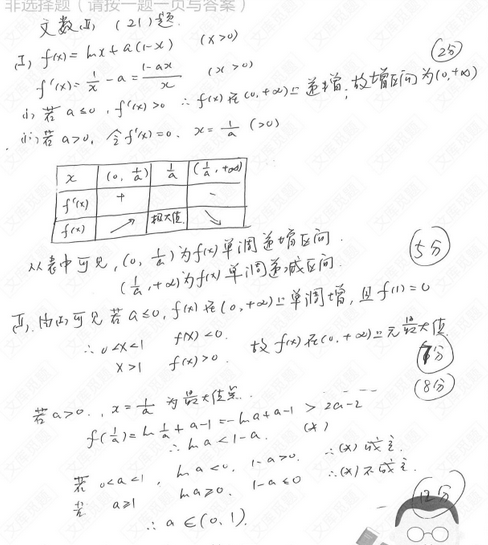 非选择题（请按一题一页与答案）
文数(II) (21)题.
I) f(x)=lnx+a(1-x) (x>0)
f'(x)=1/x-a=(1-ax)/x (x>0) (2分)
i) 若a≤0, f'(x)>0 ∴f(x)在(0,+∞)上递增,故增区间为(0,+∞)
ii) 若a>0, 令f'(x)=0. x=1/a (>0)
x (0, 1/a) 1/a (1/a, +∞)
f'(x) + -
f(x) ↗ 极大值 ↘
从表中可见, (0, 1/a)为f(x)单调递增区间. (5分)
(1/a, +∞)为f(x)单调递减区间.
II. 由(I)可见若a≤0, f(x)在(0,+∞)上单调增, 且f(1)=0
∴ 0<x<1 f(x)<0.
x>1 f(x)>0. 故f(x)在(0,+∞)上无最大值. (7分)
(8分)
若a>0., x=1/a 为最大值点.
f(1/a)=ln 1/a+a-1=-lna+a-1 > 2a-2
∴ lna<1-a. (*)
若 0<a<1, lna<0. 1-a>0. ∴(*)成立.
若 a≥1 lna≥0. 1-a≤0 ∴(*)不成立.
∴ a∈(0,1). (12分)